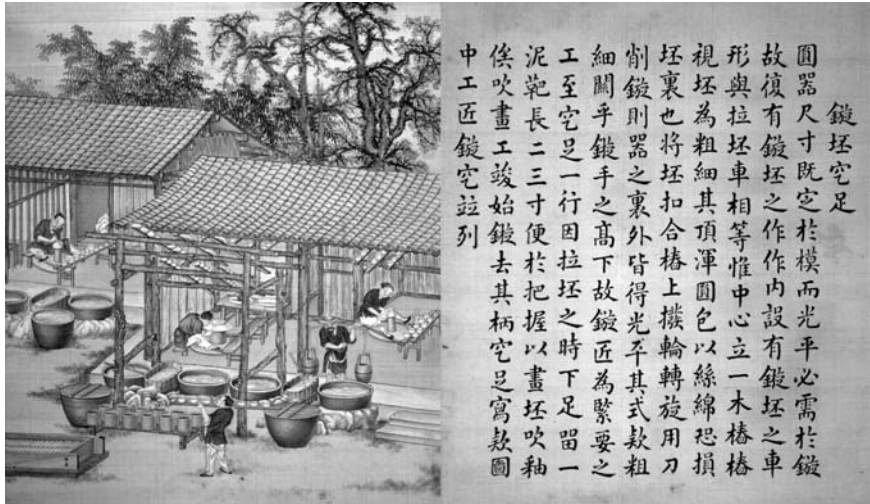 鏇坯穵足
圓器尺寸既定於模而光平必需於鏇
故復有鏇坯之作作内設有鏇坯之車
形與拉坯車相等惟中心立一木樁樁
視坯為粗細其頂渾圓包以絲綿恐損
坯裏也將坯扣合樁上撥輪轉旋用刀
削鏇則器之裏外皆得光平其式款粗
細關乎鏇手之高下故鏇匠為緊要之
工至穵足一行因拉坯之時下足留一
泥靶長二三寸便於把握以畫坯吹釉
俟吹畫工竣始鏇去其柄穵足寫款圖
中工匠鏇穵竝列